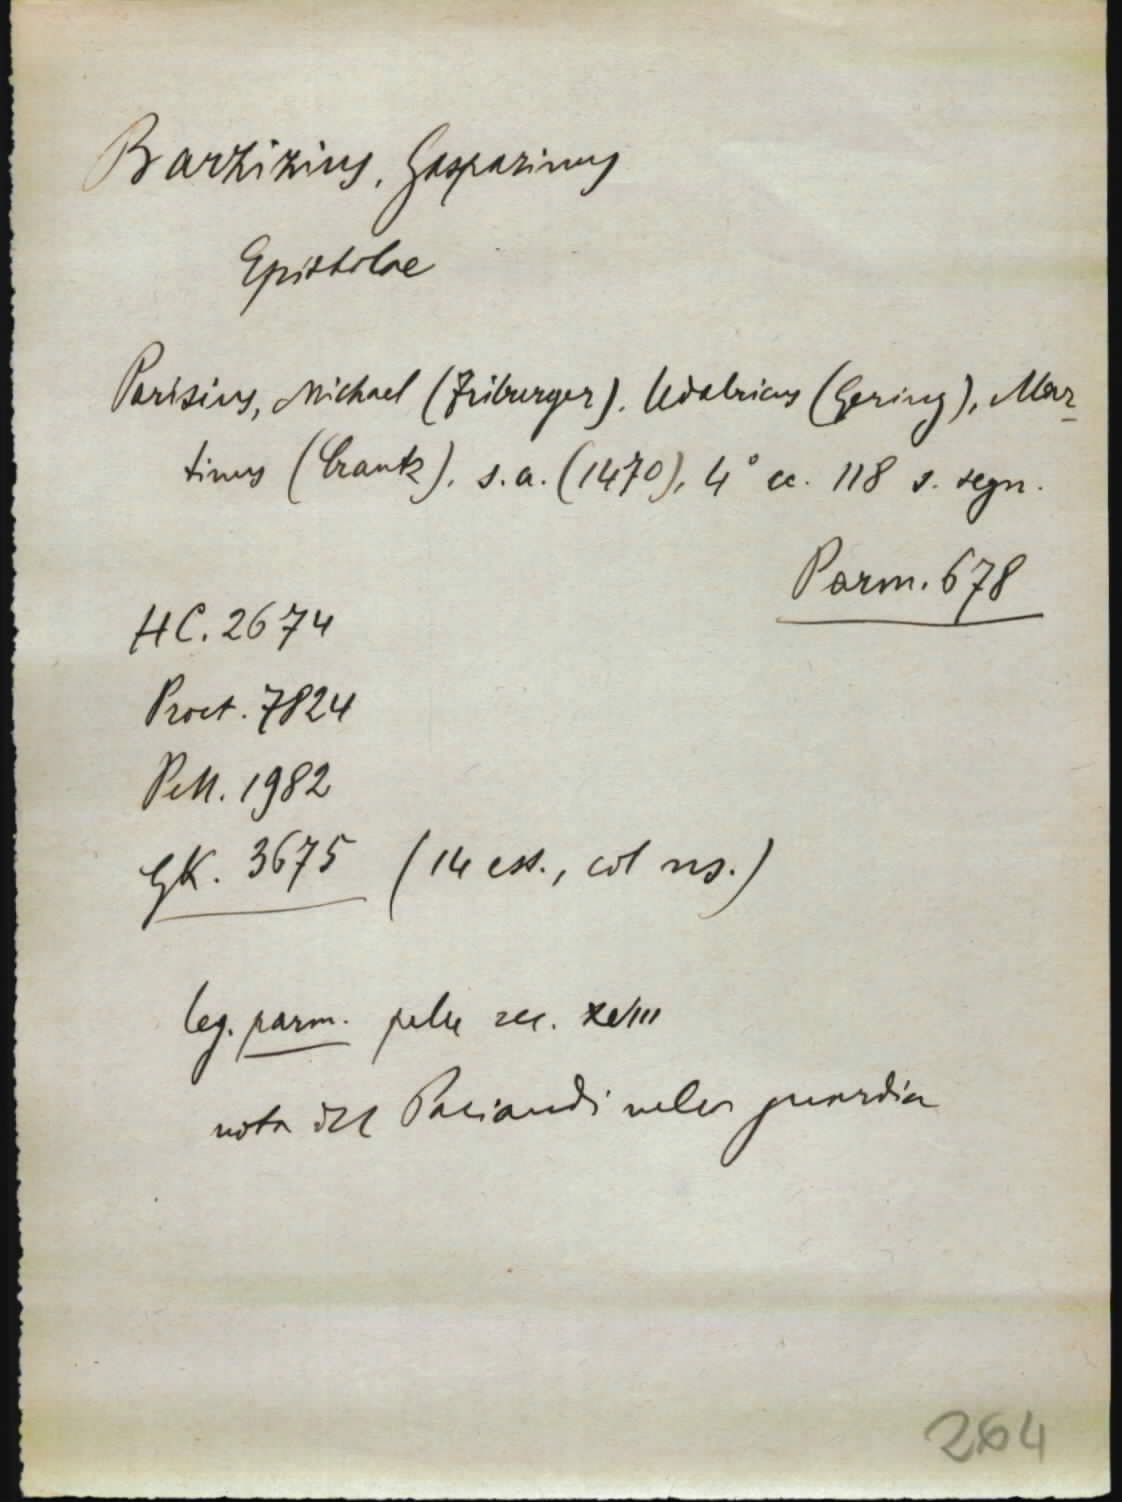 Barzizius, Gasparinus
Epistolae
Parisius, Michael (Friburger). Udalricus (Gering), Mar-
tinus (Crantz). s.a. (1470), 4° cc. 118 s. segn.
Parm. 678
HC. 2674
Proct. 7824
Pell. 1982
GK. 3675 (14 ess., col ns.)
leg. parm. pelle sec. XVIII
nota del Paciaudi nella guardia
264